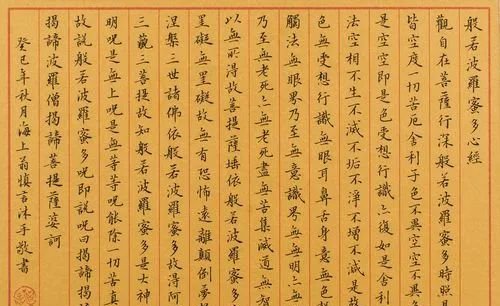 般若波羅蜜多心經
觀自在菩薩行深般若波羅蜜多時照見
皆空度一切苦厄舍利子色不異空空不異
是空空即是色受想行識亦復如是舍利
法空相不生不滅不垢不淨不增不減是故
色無受想行識無眼耳鼻舌身意無色
觸法無眼界乃至無意識界無無明亦無
乃至無老死亦無老死盡無苦集滅道無智
以無所得故菩提薩埵依般若波羅蜜多
罣礙無罣礙故無有恐怖遠離顛倒夢
涅槃三世諸佛依般若波羅蜜多故得阿
三藐三菩提故知般若波羅蜜多是大神
明呪是無上呪是無等等呪能除一切苦真
故說般若波羅蜜多呪即說呪曰揭諦揭
揭諦波羅僧揭諦菩提薩婆訶
癸巳年秋月海上翁慎言沐手敬書